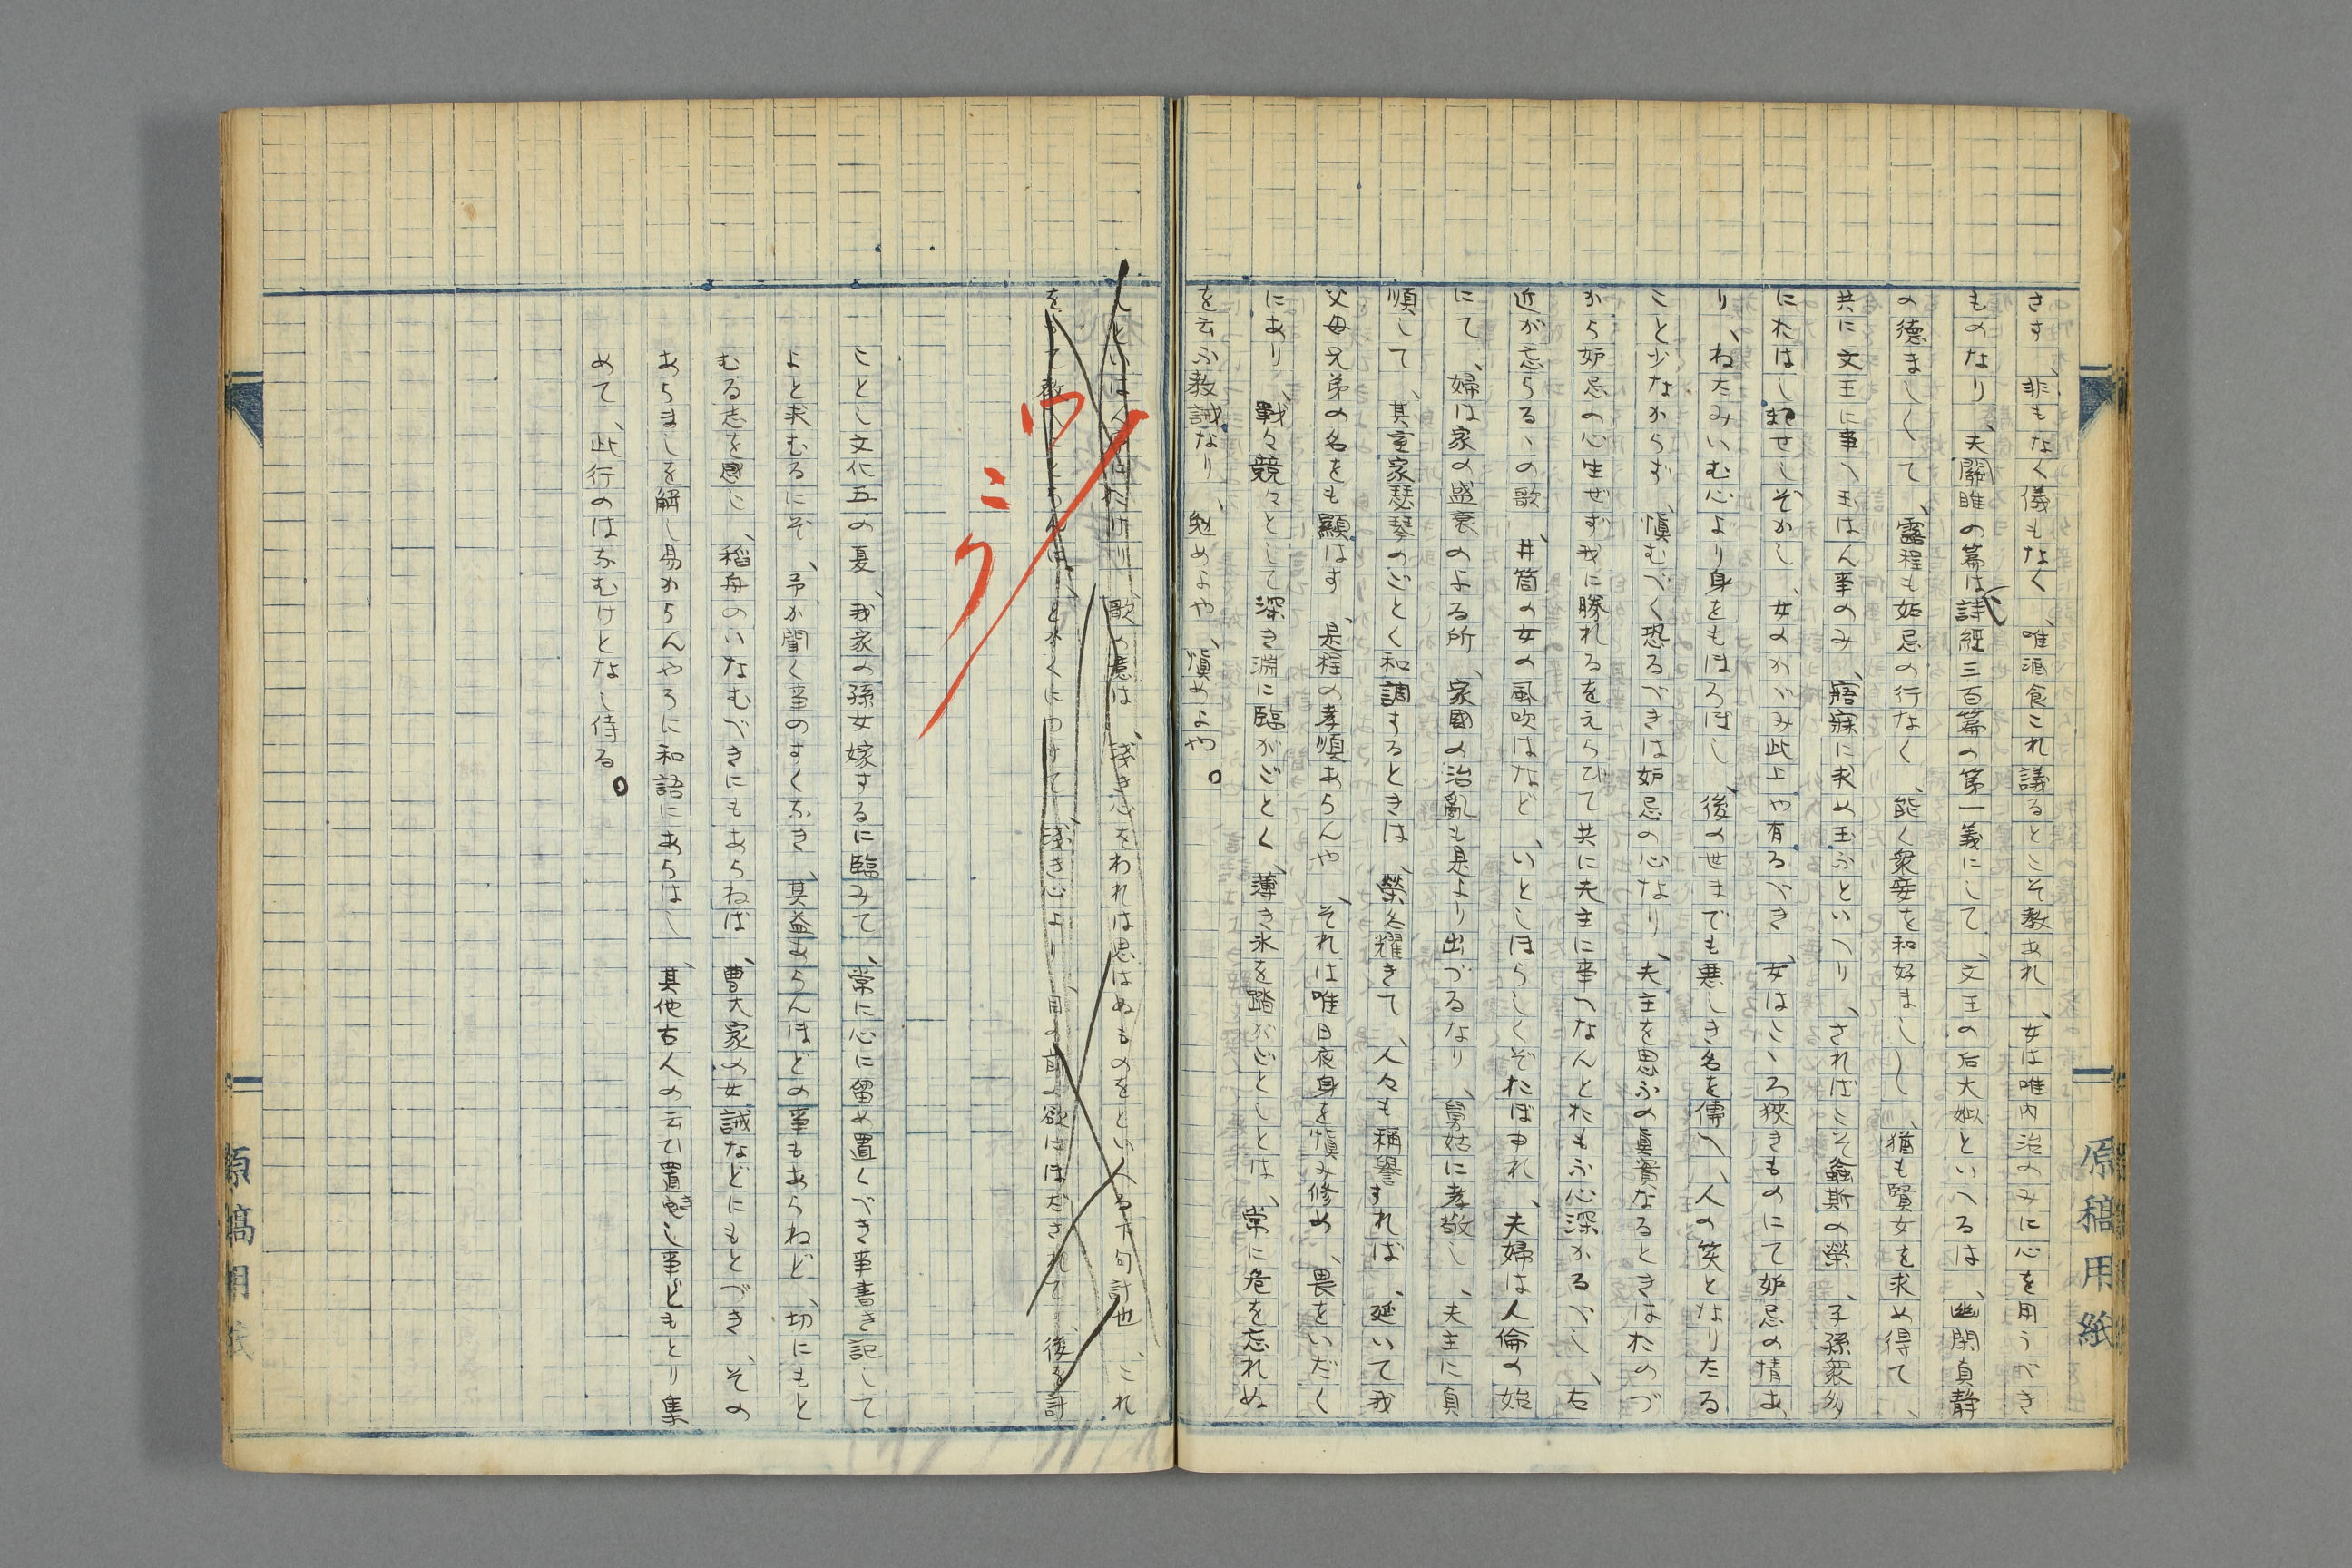 さす、非もなく儀もなく、唯酒食これ議るとこそ教あれ、女は唯内治のみに心を用うべき
ものなり、夫關雎の篇は詩經三百篇の第一義にして、文王の后大姒といへるは、幽閑貞静
の德ましくして、露程も妬忌の行なく、能く衆妾を和好ましし、猶も賢女を求め得て、
共に文王に事へ玉はん事のみ、寤寐に求め玉ふといへり、さればこそ螽斯の榮、子孫衆多
にわたはしませしぞかし、女のかゞみ此上や有るべき、女はこゝろ狹きものにて妬忌の情あ
り、ねたみいむ心より身をもほろぼし、後の世までも悪しき名を傳へ、人の笑となりたる
こと少なからず、愼むべく恐るべきは妬忌の心なり、夫主を思ふの眞實なるときはたのづ
から妒忌の心生ぜず我に勝れるをえらびて共に夫主に事へなんとたもふ心深かるべし、右
近が忘らるゝの歌、井筒の女の風吹はなど、いとしほらしくぞたぼゆれ、夫婦は人倫の始
にて、婦は家の盛衰のよる所、家國の治亂も是より出づるなり、舅姑に孝敬し、夫主に貞
順して、其室家瑟琴のごとく和調するときは、榮名耀きて、人々も稱譽すれば、延いて我
父母兄弟の名をも顯はす、是程の孝順あらんや、それは唯日夜身を愼み修め、畏をいだく
にあり、戰々競々として深き淵に臨がごとく、薄き氷を踏がごとしとは、常に危を忘れぬ
を云ふ教誡なり、勉めよや、愼めよや。
歌の意は、淺き心をわれは思はぬものをといへる下句計也、これ
とかくにつけて、淺き心より、目の前の欲にほだされて、後を計
ウ
ニ
ク
ことし文化五の夏、我家の孫女嫁するに臨みて、常に心に留め置くべき事書き記して
よと求むるにぞ、予か聞く事のすくなき、其益あらんほどの事もあらねど、切にもと
むる志を感じ、稻舟のいなむべきにもあらねば、曹大家の女誡などにもとづき、その
あらましを解し易からんやうに和語にあらはし、其他古人の云ひ置きし事どもとり集
めて、此行のはなむけとなし侍る。
原稿用紙
原稿用紙